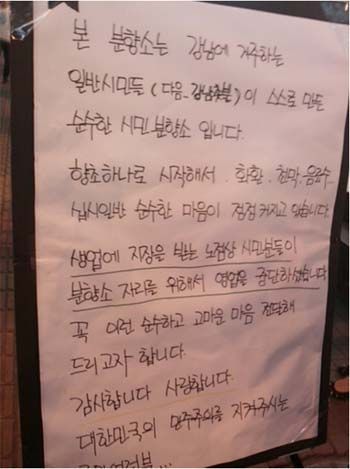 본 분향소는 강남에 거주하는
일반시민들 (다음_강남촛불)이 스스로 만든
순수한 시민 분향소 입니다.
향초하나로 시작해서. 화환. 천막. 음료수
십시일반 순수한 마음이 점점 커지고 있습니다.
생업에 지장을 받는 노점상 시민분들이
분향소 자리를 위해서 영업을 중단하셨습니다
꼭 이런 순수하고 고마운 마음 전달해
드리고자 합니다.
감사합니다 사랑합니다.
대한민국의 민주주의를 지켜주시는